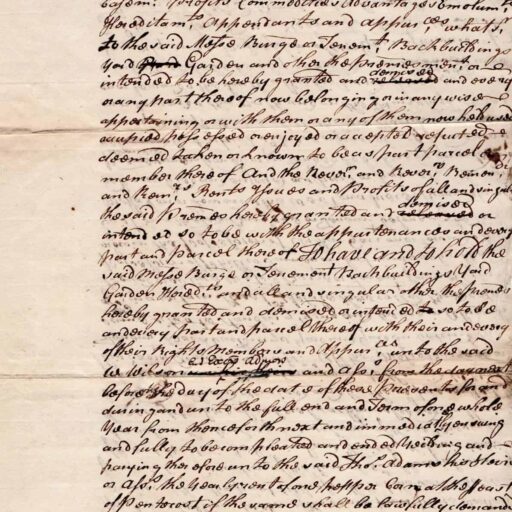 Easem.ts Profits Commodities Advantages Emolum.ts
Hereditam.ts Appendants and Appur.ces whats.r
to the said Messe Burge or Tenem.t Backbuildings
Yard Garden and other the premes ment.d or
intended to be hereby granted and demised released and every
or any part thereof now belonging or in any wise
appertaining or with them or any of them now held used
occupied possessed or enjoyed or accepted reputed
deemed taken or known to be as part parcel or
member thereof And the Rever.n and Rever.ns Remen.r
and Rem.rs Rents Issues and Profits of all and singular
the said Premes hereby granted and demised released or
intended so to be with the appurtenances and every
part and parcel thereof To have and to hold the
said Messe Burge or Tenement Backbuildings Yard
Garden Heredit.s and all and singular other the premes
hereby granted and demised or intended so to be
and every part and parcel thereof with their and every
of their Rights Members and Appur.ces unto the said
W Wilson and Ass.s from the day next
before the day of the date of these Presents for and
during and unto the full end and Term of one whole
Year from thence forth next and immediately ensuing
and fully to be compleated and ended Yeilding and
paying therefore unto the said Tho.s Adams his Heirs
or Ass.s the Yearly rent of one pepper Corn at the Feast
of Pentecost if the same shall be lawfully demanded